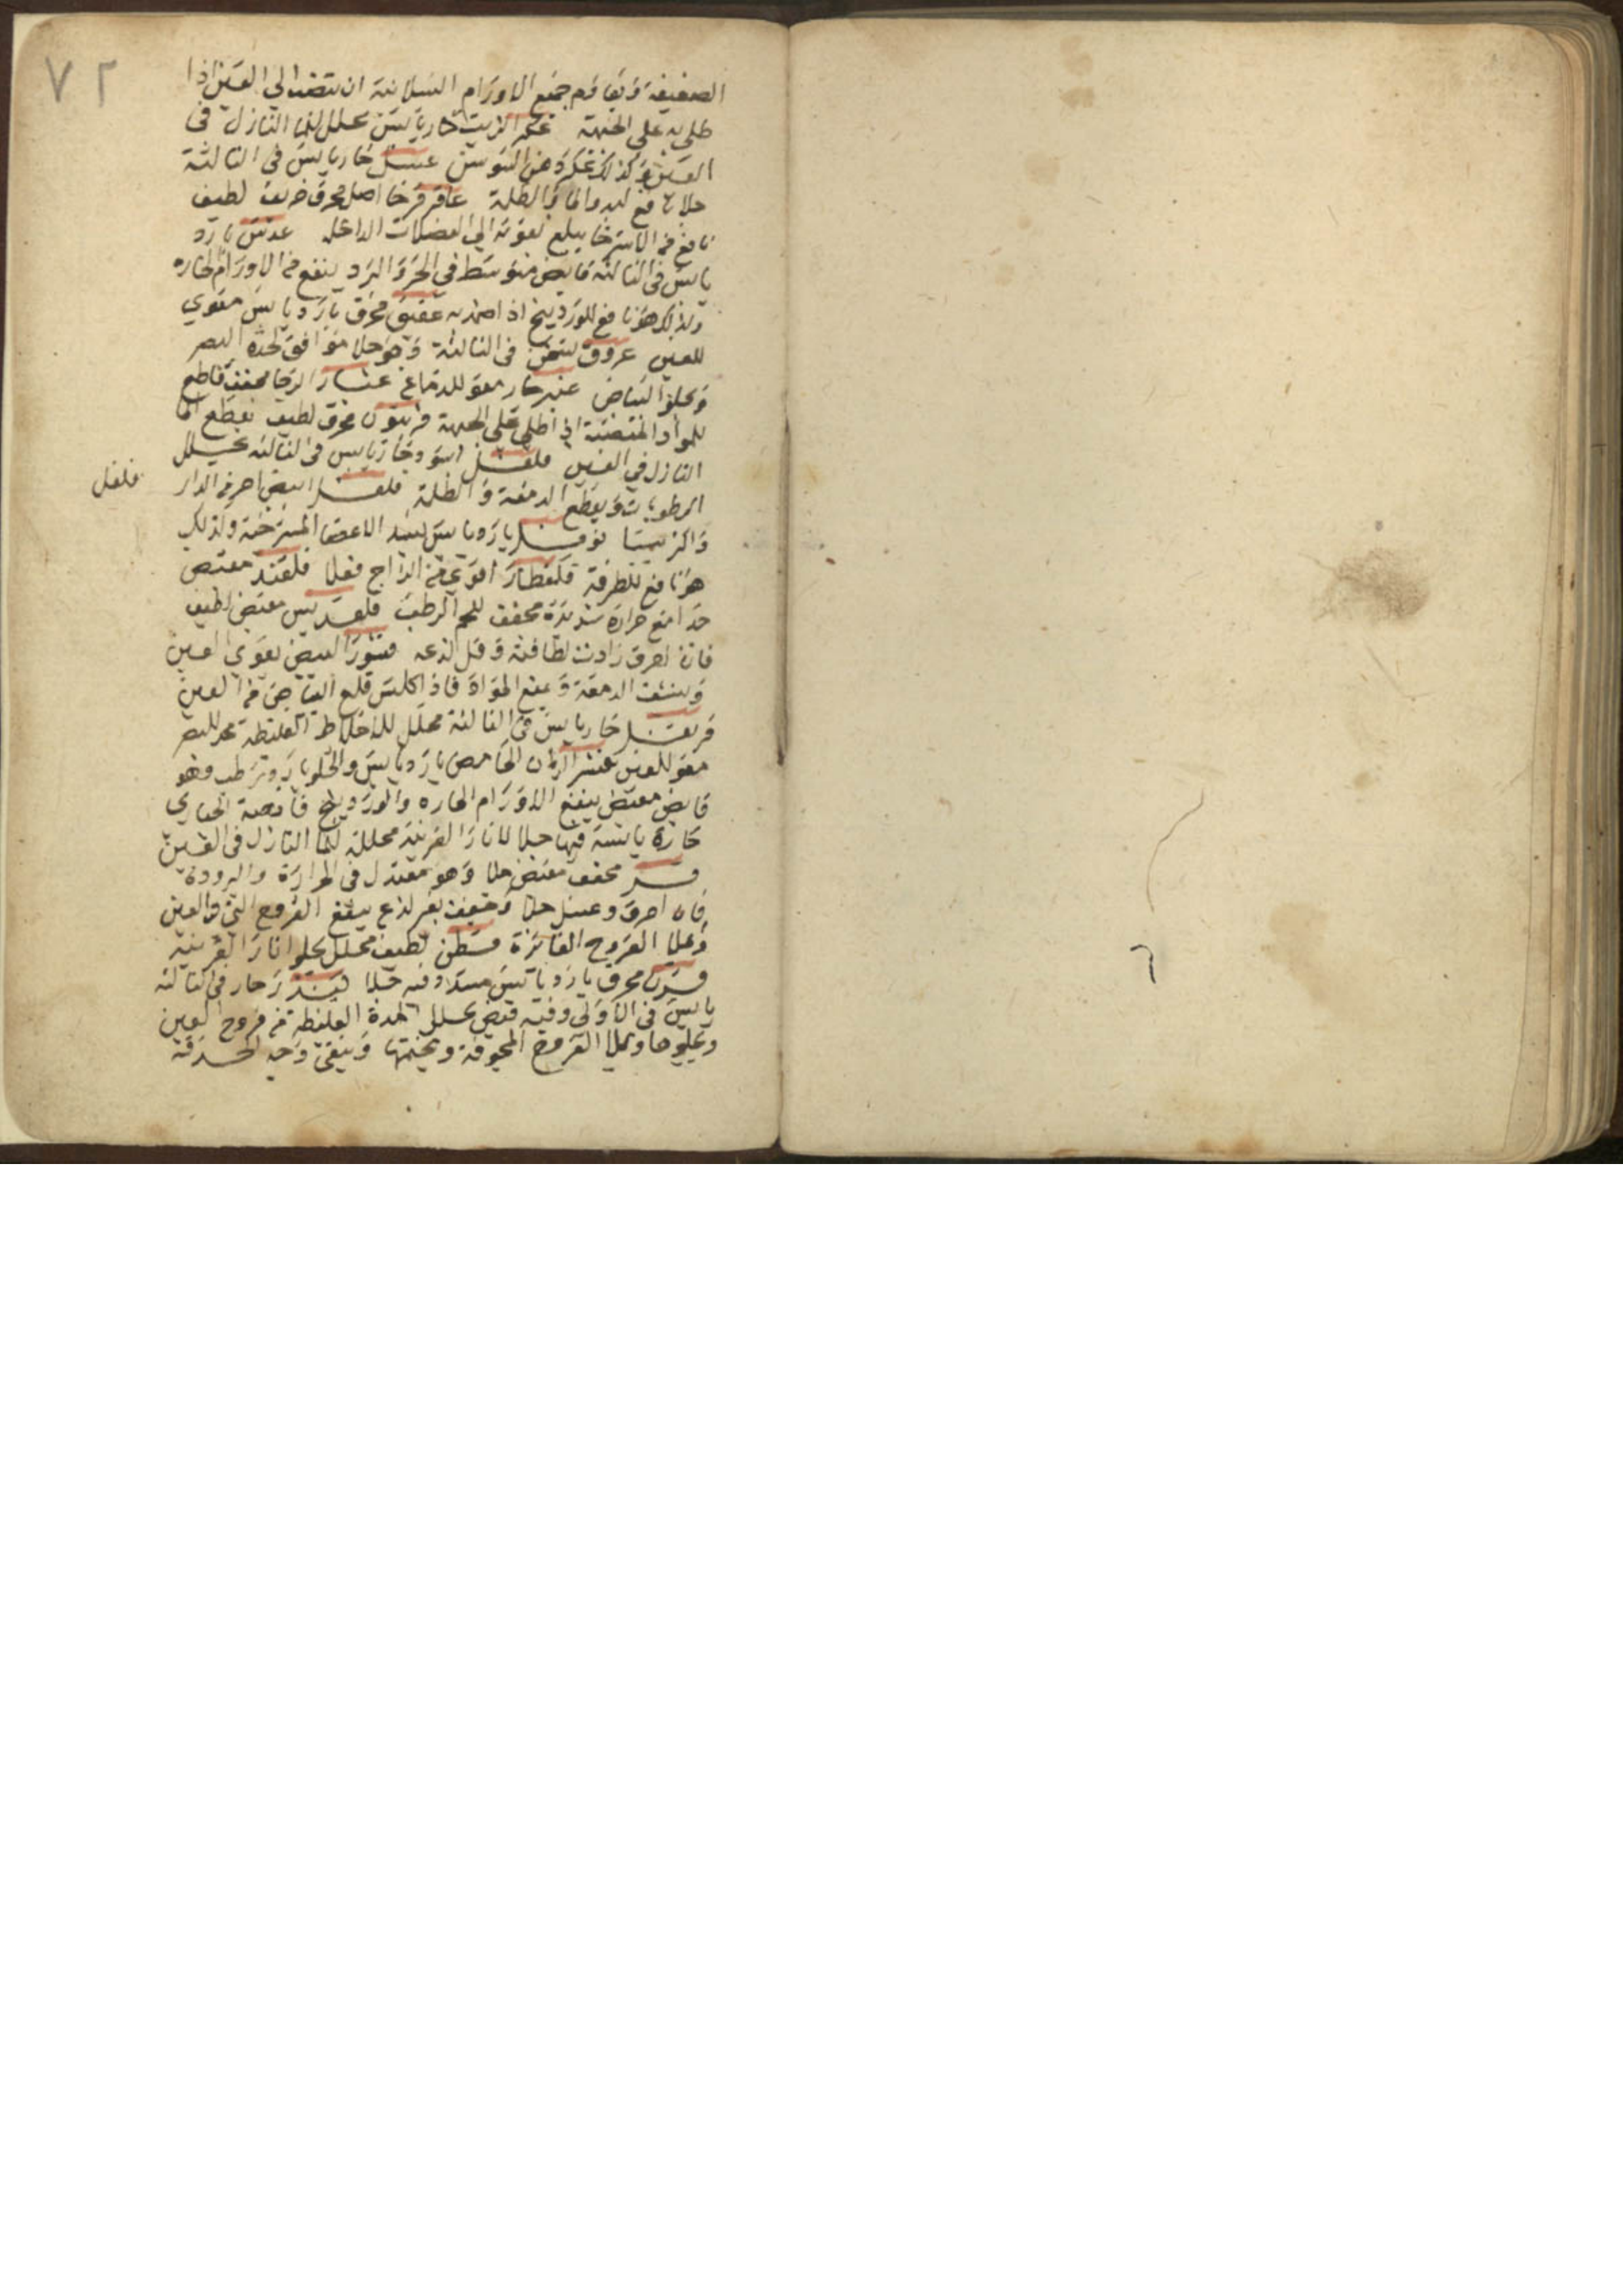 ٧٢
الضعيفة ويقاوم جميع الاورام السلانية ان تنصب الى العين اذا
طلي به على الجبهة عكر الزيت حار يابس يحلل الماء النازل في
العين وكذلك عكر دهن السوسن عسل حار يابس في الثالثة
جلا نافع لبدو الماء والظلمة عاقرقرحا اصل محرق حريف لطيف
نافع من الاسترخا يبلغ بقوته الى العضلات الداخلة عدس بارد
يابس في الثالثة قابض متوسط في الحر والبرد ينفع من الاورام الحاره
ولذلك هو نافع للوردينج اذا ضمد به عقيق محرق بارد يابس مقوي
للعين عروق يسخن في الثالثة وهو جلا موافق لحدة البصر
ويجلو البياض عنبر حار مقو للدماغ غبار الرحا مجفف قاطع
للمواد المنصبة اذا طلي على الجبهة فربيون محرق لطيف يقطع الما
النازل في العين فلفل اسود حار يابس في الثالثة يحلل
الرطوبات ويقطع الدمعة والظلمة فلفل ابيض احر من الدار
فلفل
واكثر يبسا فوفل بارد يابس يشد الاعضا المسترخية ولذلك
هو نافع للطرفة قلقطار اقوى من الزاج فعلا قلقند مقبض
جدا مع حرارة شديدة مجفف للحم الرطب قلقديس مقبض لطيف
فان احرق زادت لطافته وقل لذعه قشور البيض يقوي العين
وينشف الدمعة ويمنع المواد فاذا كلس قلع البياض من العين
قرنفل حار يابس في الثالثة محلل للاخلاط الغليظة محد للبصر
مقو للعين قشر الرمان الحامض بارد يابس والحلو بارد رطب وهو
قابض مقبض ينفع الاورام الحاره والوردينج قانصة الحباري
حارة يابسة فيها جلا لاثار القرنية محللة للما النازل في العين
مجفف مقبض جلا وهو معتدل في الحرارة والبرودة
فان احرق وغسل جلا وجفف بغير لذع ينفع القروح التي في العين
وتملا القروح الغائرة قسطن لطيف محلل يجلو اثار القرنية
قرن محرق بارد يابس مسدد وفيه جلا كندر حار في الثالثة
يابس في الاولى وفيه قبض يحلل المدة الغليظة من قروح العين
ويجلوها ويملا القروح المجوفة ويختمها وينقي وجه الحدقة